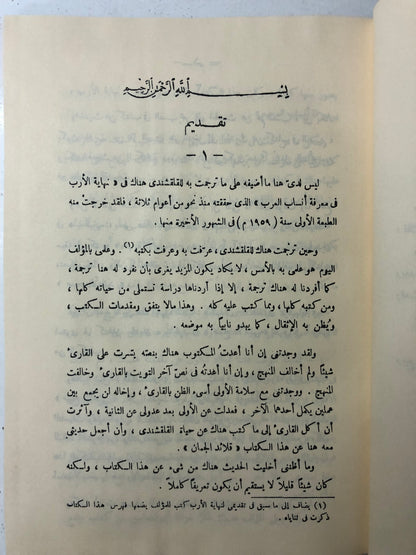 بسم الله الرحمن الرحيم
تقديم
— ١ —
ليس لدى هنا ما أضيفه على ما ترجمت به للقلقشندى هناك فى « نهاية الأرب
فى معرفة أنساب العرب » الذى حققته منذ نحو من أعوام ثلاثة ، فلقد خرجتْ منه
الطبعة الأولى سنة ( ١٩٥٩ م ) فى الشهور الأخيرة منها .
وحين ترجمت هناك للقلقشندى ، عرّفت به وعرفت بكتبه (١) . وعلمى بالمؤلف
اليوم هو علمى به بالأمس ، لا يكاد يكون المزيد يغرى بأن نفرد له هنا ترجمة ،
كما أفردنا له هناك ترجمة ، إلا إذا أردناها دراسة تستملى من حياته كلها ،
ومن كتبه كلها ، ومما كتب عليه كله . وهذا مالا يتفق ومقدمات الكتب ،
ويُظن به الإثقال ، كما يبدو نابياً به موضعه .
ولقد وجدتنى إن أنا أعدتُ المكتوب هناك بنصّه يسّرت على القارئ
شيئاً ولم أخالف المنهج ، وإن أنا أعدتُه فى نصّ آخر التويت بالقارئ وخالفت
المنهج . ووجدتنى مع سلامة الأولى أسىء الظن بالقارئ وإخاله لن يجمع بين
عملين يكمل أحدهما الآخر ، فعدلت عن الأولى بعد عدولى عن الثانية ، وآثرت
أن أكل القارئ إلى ما كتب هناك عن حياة القلقشندى ، وأن أجعل حديثى
معه هنا عن هذا الكتاب « قلائد الجمان » .
وما أظننى أخليت الحديث هناك من شىء عن هذا الكتاب ، ولكنه
كان شيئاً قليلاً لا يستقيم أن يكون تعريفاً كاملاً .
(١) يضاف إلى ما سبق فى تقديمى لنهاية الأرب كتب للمؤلف يضمها فهرس هذا الكتاب
ذكرت فى ثناياه .